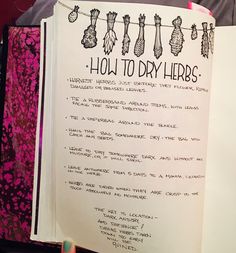 HOW TO DRY HERBS
· HARVEST HERBS JUST BEFORE THEY FLOWER, REMOVE
DAMAGED OR BRUISED LEAVES.
· TIE A RUBBERBAND AROUND STEMS, WITH LEAVES
FACING THE SAME DIRECTION.
· TIE A PAPERBAG AROUND THE BUNDLE.
· HANG THE BAG SOMEWHERE DRY - THE BAG WILL
CATCH ANY SEEDS.
· LEAVE TO DRY SOMEWHERE DARK AND WITHOUT ANY
MOISTURE, OR IT WILL SPOIL.
· LEAVE ANYWHERE FROM 5 DAYS TO A MONTH, DEPENDING
ON THE HERB.
· HERBS ARE READY WHEN THEY ARE CRISP TO THE
TOUCH, ABSOLUTELY NO MOISTURE.
THE KEY IS LOCATION -
DARK AND DRY
AND PATIENCE!
HERBS TAKEN
DOWN TOO EARLY
WILL BE
RUINED.